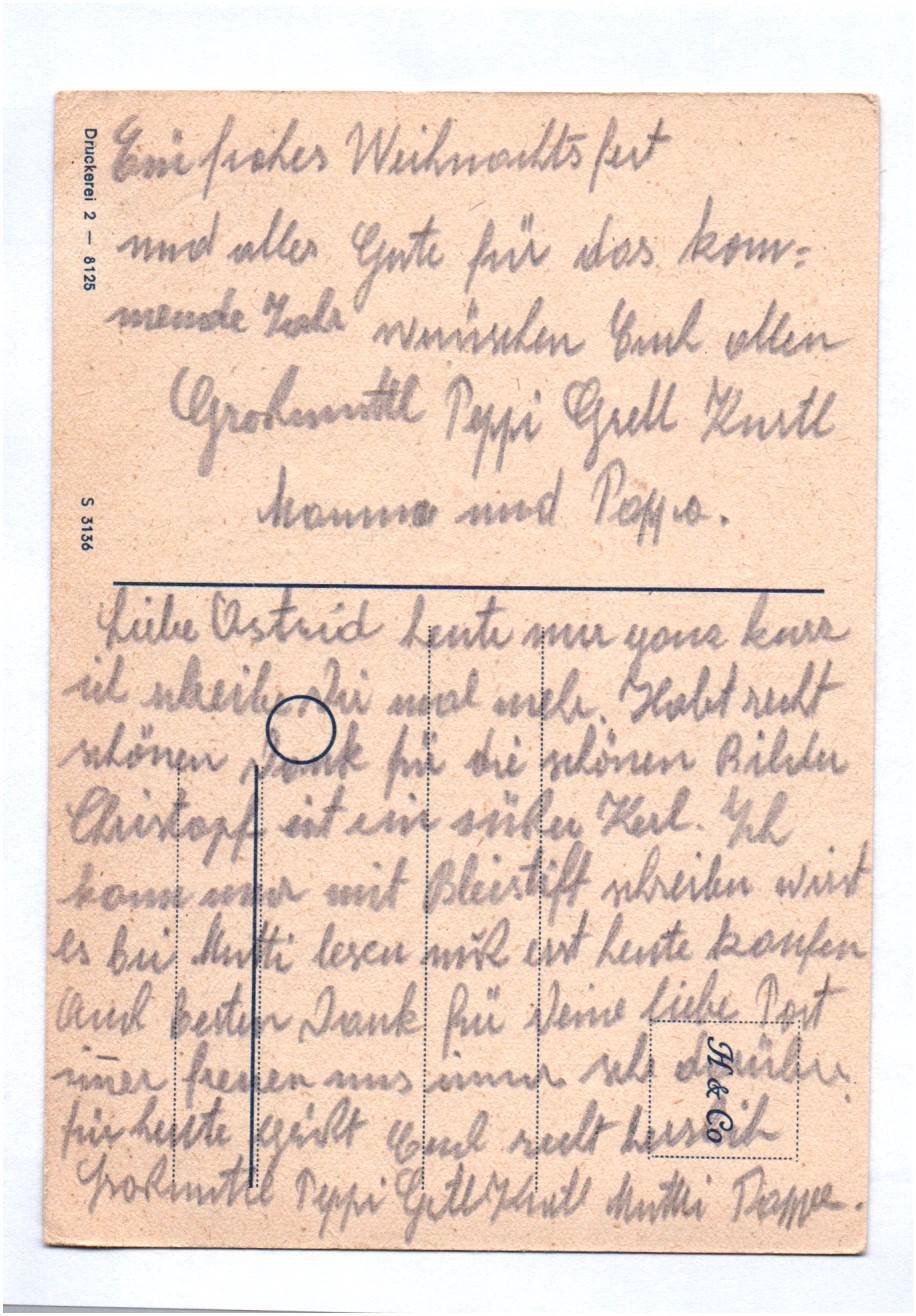 Ein frohes Weihnachtsfest
und alles Gute für das kom=
mende Jahr wünschen Euch allen
Großmuttl Peppi Gretl Kurtl
Mamma und Pappa.
Druckerei 2 — 8125
S 3136
Liebe Astrid heute nur ganz kurz
ich schreibe Dir mal mehr. Habt recht
schönen Dank für die schönen Bilder
Christopf ist ein süßer Kerl. Ich
kann nur mit Bleistift schreiben wirst
es bei Mutti lesen muß erst heute kaufen
Auch besten Dank für Deine liebe Post
im̄er freuen uns immer sehr darüber.
für heute grüßt Euch recht herzlich
Großmuttl Peppi Gretl Kurtl Mutti Pappa.
H & Co